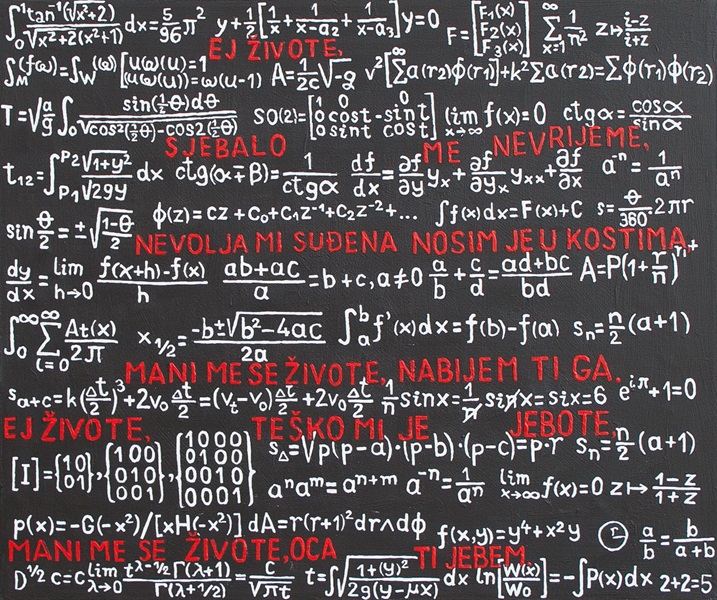 ∫₀¹ tan⁻¹(√x²+2)/(√x²+2(x²+1)) dx=5/96 π² y+½[1/x+1/(x-a₂)+1/(x-a₃)]y=0 F=[F₁(x) F₂(x) F₃(x)] ∞Σx=1 1/n² z↦(i-z)/(i+z)
EJ ŽIVOTE,
∫M(fω)=∫W(ω) [uω(u)=1 (uω(u))=ω(u-1)] A=1/2c √-g v²[∞Σa(r2)ϕ(r1)]+k²Σa(r2)=Σϕ(r1)ϕ(r2)
T=√a/g ∫₀ sin(½θ)dθ/√cos²(½θ)-cos2(½θ) SO(2)=[1 0 0 0 cost -sint 0 sint cost] lim x→∞ f(x)=0 ctgα=cosα/sinα
SJEBALO ME NEVRIJEME,
t₁₂=∫P1 P2 √1+y²/√2gy dx ctg(α∓β)=1/ctgα df/dx=∂f/∂y yx+∂f/∂yx yxx+∂f/∂x a⁻ⁿ=1/aⁿ
sin θ/2=±√(1-θ)/2 ϕ(z)=cz+c₀+c₁z⁻¹+c₂z⁻²+... ∫f(x)dx=F(x)+C s=θ/360° 2πr
NEVOLJA MI SUĐENA NOSIM JE U KOSTIMA,
dy/dx=lim h→0 (f(x+h)-f(x))/h (ab+ac)/a=b+c,a≠0 a/b+c/d=(ad+bc)/bd A=P(1+r/n)
∫₀∞ ∞Σi=0 At(x)/2π x₁/₂=(-b±√b²-4ac)/2a ∫ₐᵇf'(x)dx=f(b)-f(a) sₙ=n/2(a+1)
MANI ME SE ŽIVOTE, NABIJEM TI GA.
sₐ₊c=k(Δt/2)³+2v₀Δt/2=(vt-v₀)Δt/2+2v₀Δt/2 1/n sinx=1/n sinx=six=6 e^iπ+1=0
EJ ŽIVOTE, TEŠKO MI JE JEBOTE,
[I]={10 01},{100 010 001},{1000 0100 0010 0001} s△=√p(p-a)·(p-b)·(p-c)=p·r sₙ=n/2(a+1)
aⁿaᵐ=aⁿ⁺ᵐ a⁻ⁿ=1/aⁿ lim x→∞ f(x)=0 z↦(1-z)/(1+z)
p(x)=-G(-x²)/[xH(-x²)] dA=r(r+1)²dr∧dϕ f(x,y)=y⁴+x²y a/b=b/(a+b)
MANI ME SE ŽIVOTE, OCA TI JEBEM.
D^½ c=c lim λ→0 t^(λ-½)Γ(λ+1)/Γ(λ+½)=c/√πt t=∫√(1+(y)²)/(2g(y-μx)) dx ln[W(x)/W₀]=-∫P(x)dx 2+2=5